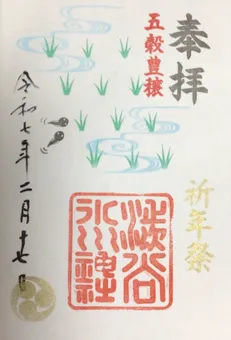 奉拝
五穀豊穣
祈年祭
澁谷
氷川神社
令和七年二月十七日